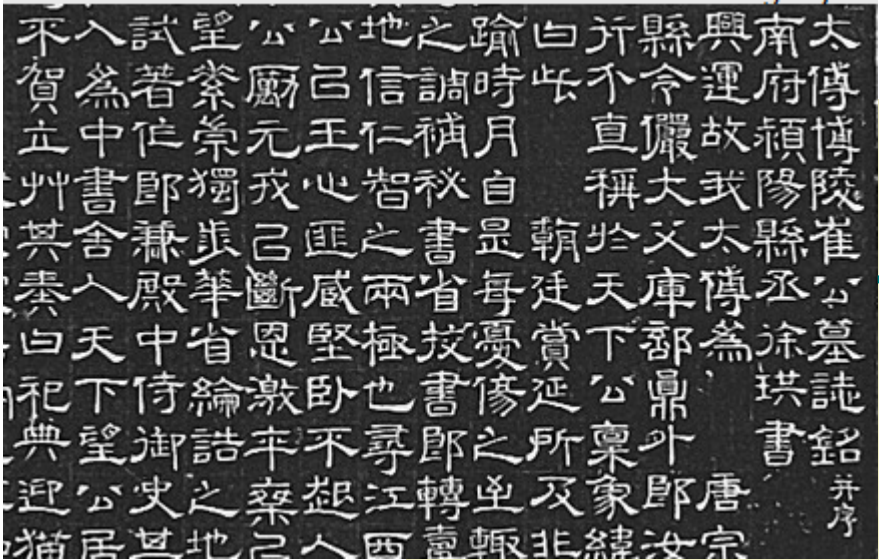 太傅博陵崔公墓誌銘并序
南府潁陽縣丞徐珙書
興運故我太傅為 唐宗
縣令儼大父庫部員外郎汝
行不直稱於天下公稟象緯
曰此 朝廷賞延所及非
踰時月自是每憂傷之至輒
之調補秘書省挍書郎轉
地信仁智之兩極也尋江西
公己王心匪威堅臥不起人
公勵元戎己斷恩激卒乘己
望崇獨步華省綸誥之地
試著作郎兼殿中侍御史其
入為中書舍人天下望公居
不賀立艸其奏曰祀典迎猫